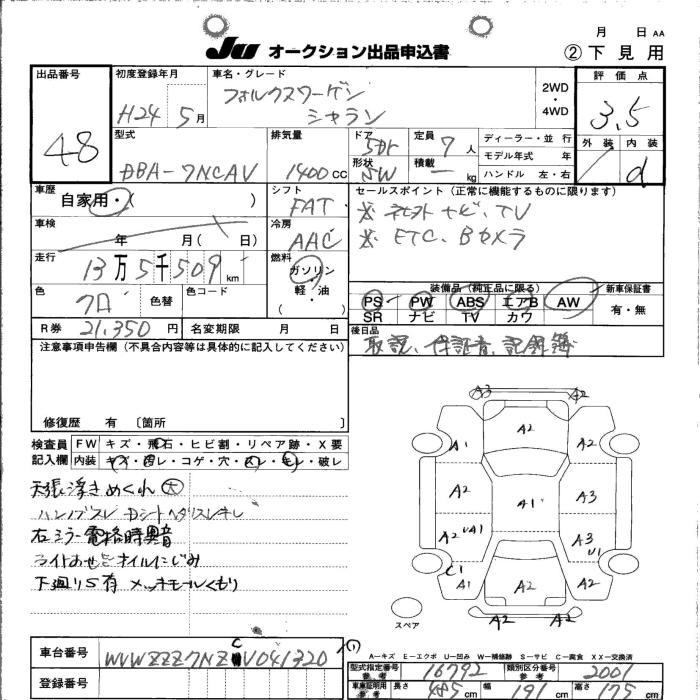 月 日 AA
JU オークション出品申込書
② 下見用
出品番号 48
初度登録年月 H24年 5月
車名・グレード フォルクスワーゲン
シャラン
2WD・4WD
評価点 3.5
外装 内装 d
型式 DBA-7NCAV
排気量 1400 CC
ドア 5Dr
形状 SW
定員 7人
積載 — kg
ディーラー・並行
モデル年式 年
ハンドル 左・右
車歴 自家用・( )
シフト FAT
セールスポイント(正常に機能するものに限ります)
※ 社外ナビ、TV
※ ETC、Bカメラ
車検 年 月( 日)
冷房 AAC
走行 13万5千509 km
燃料 ガソリン・軽・油( )
色 クロ 色替 色コード
装備品(純正品に限る) 新車保証書
PS PW ABS エアB AW
SR ナビ TV カワ
有・無
R券 21,350円 名変期限 月 日
後日品
取説、保証書、記録簿
注意事項申告欄(不具合内容等は具体的に記入してください)
修復歴 有 〔箇所 〕
検査員記入欄
FW キズ・飛石・ヒビ割・リペア跡・X要
内装 キズ・凹レ・コゲ・穴・スレ・モレ・破レ
天張浮きめくれ 大
ハンドルスレ Dシートヘタリスレキレ
右ミラー電格時異音
ライトおせ オイルにじみ
下廻りS有 メッキモールくもり
A3 A2
A1 A2 A2
A2 A1 A3
A2 UA1 A3 U1
C1
A1 A2 A2
A2 A2
スペア
A-キズ E-エクボ U-凹み W-補修跡 S-サビ C-腐食 XX-交換済
車台番号 WVWZZZ7NZCV041320 (1)
登録番号
型式指定番号 参考 16792
類別区分番号 参考 2001
車庫証明用 参考 長さ 485 cm 幅 191 cm 高さ 175 cm